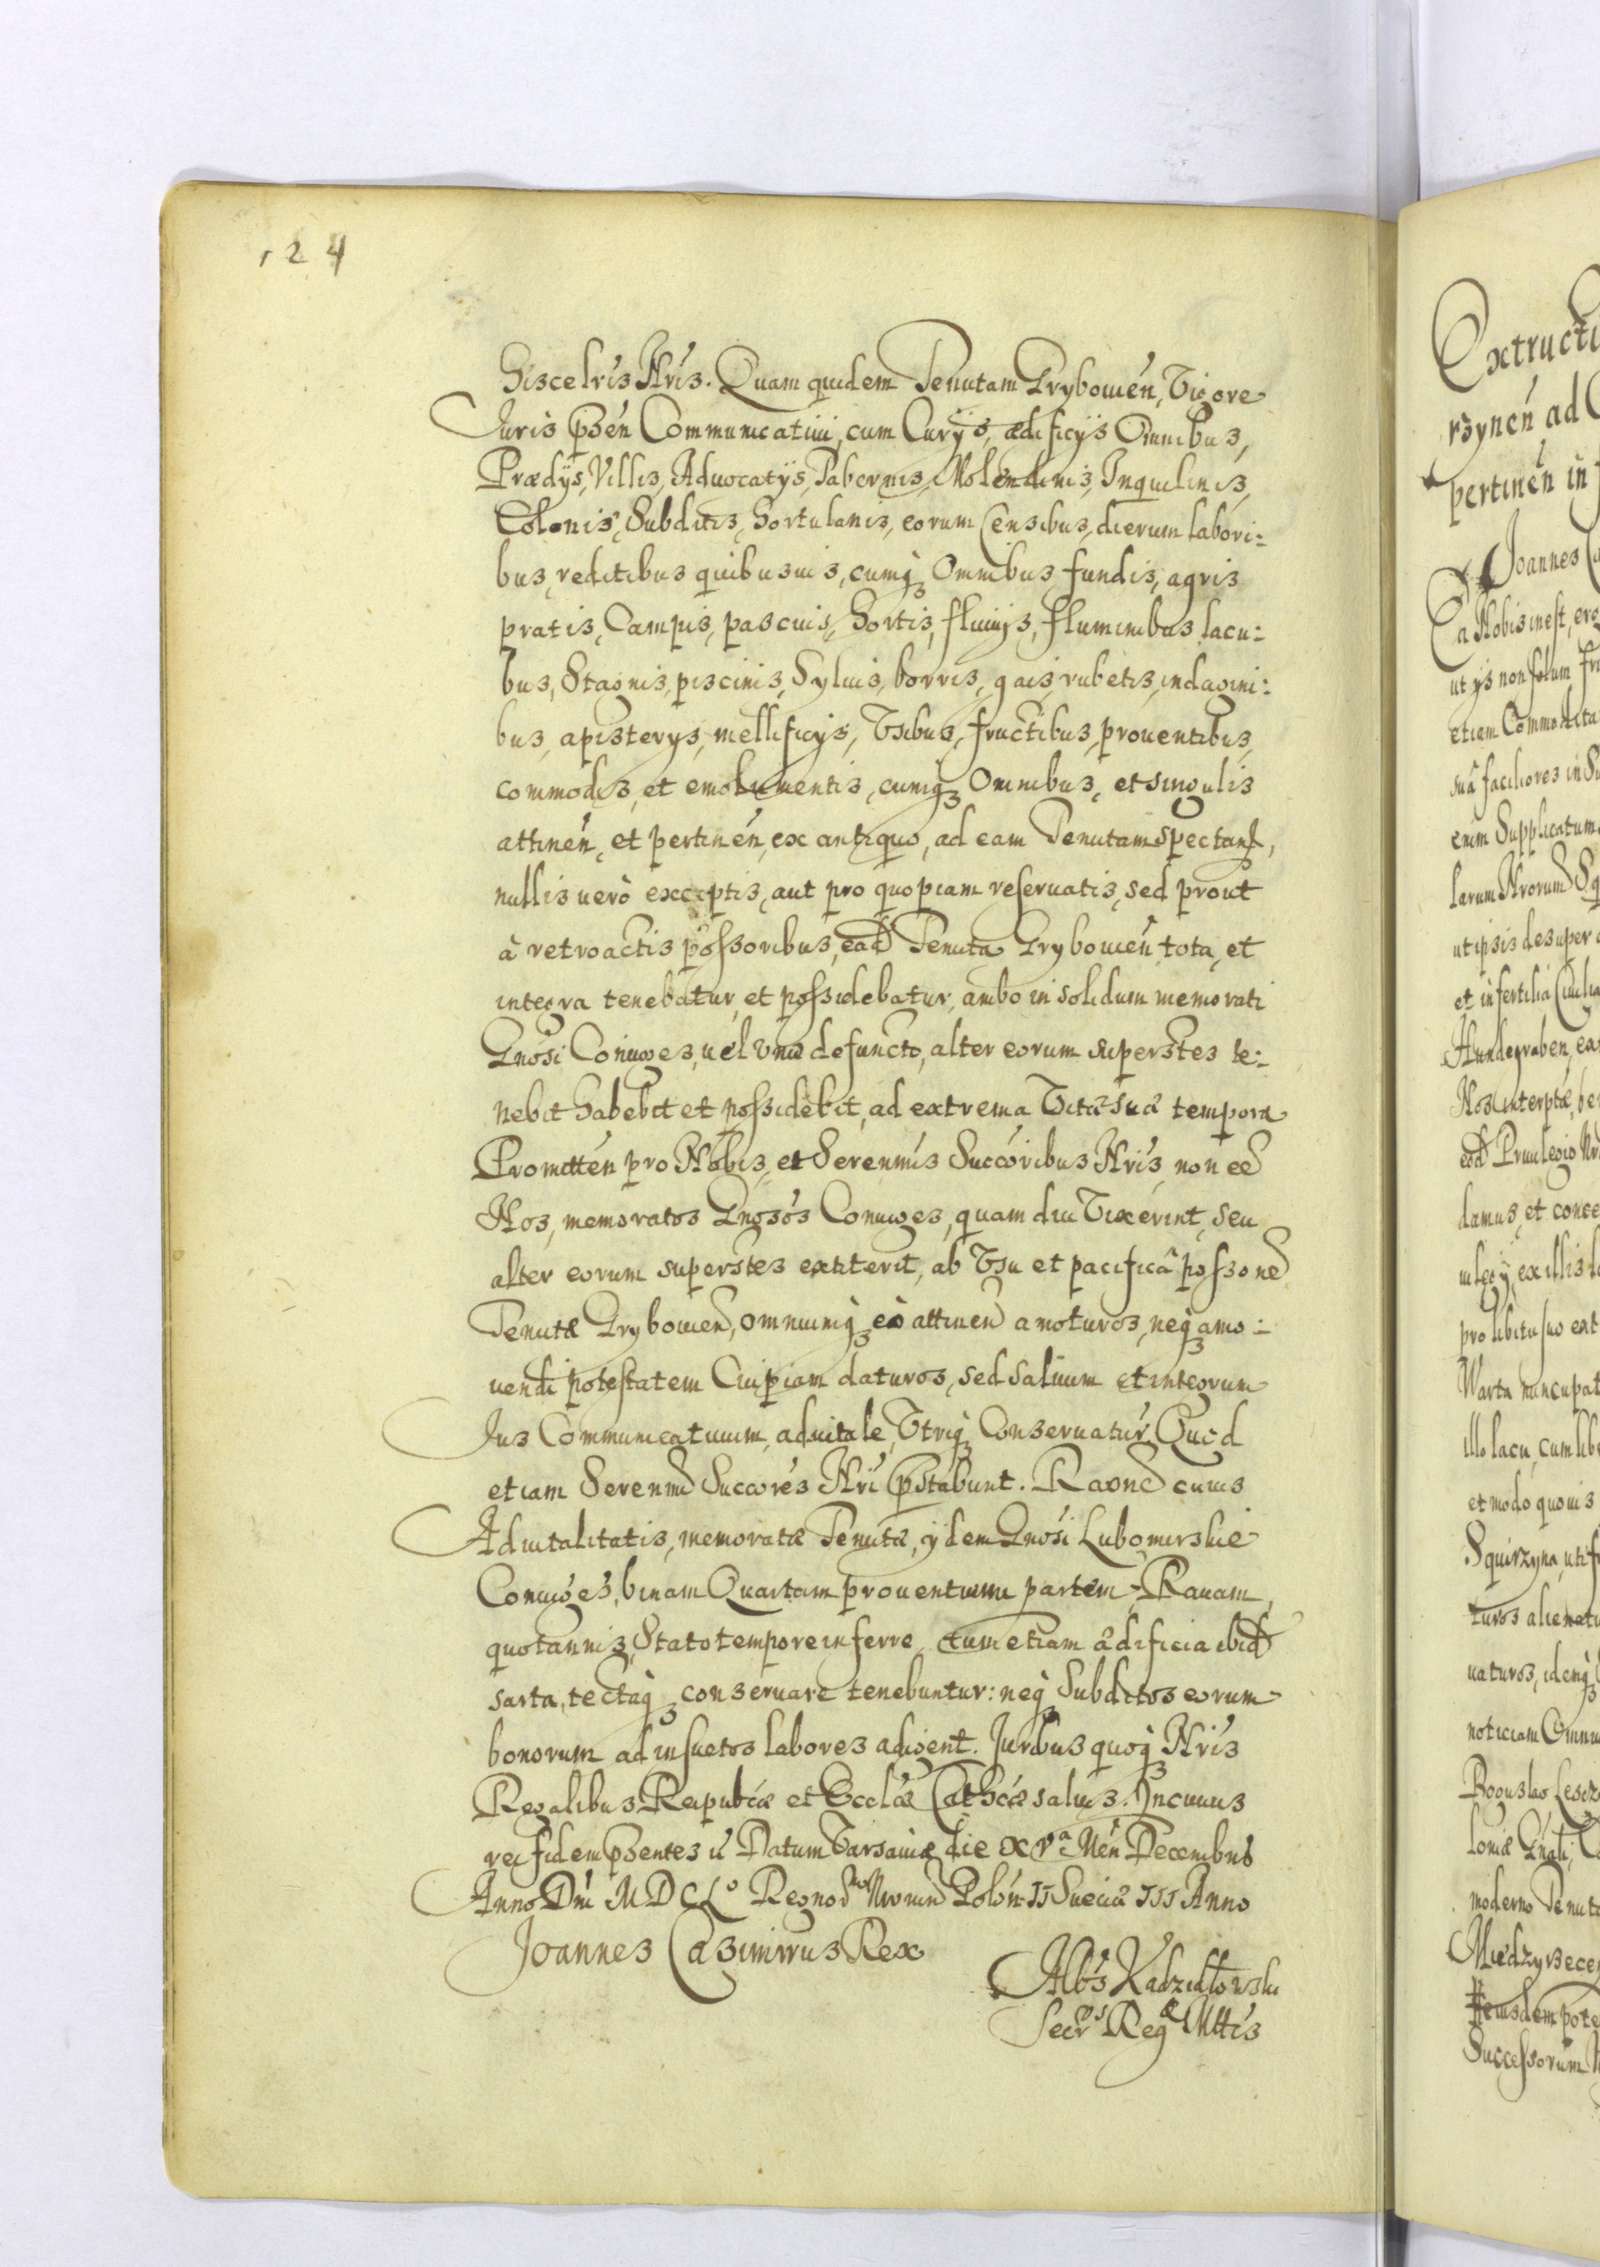 124
hisce lris Nris. Quam quidem Tenutam Grybowień, Vigore
Juris pśen Communicatiui, cum Curÿs, ædificÿs Omnibus,
Prædÿs, Villis, Aduocatÿs, Tabernis, Molendinis, Inquilinis,
Colonis, Subditis, hortulanis, eorum Censibus, dierum labori:
bus, reditibus quibusuis, cumq; Omnibus fundis, agris
pratis, Campis, pascuis, hortis, fluuijs, fluminibus lacu:
bus, Stagnis, piscinis, Syluis, borris, gais, rubetis, indagini:
bus, apisterys, mellificys, Vsibus, fructibus, prouentibus,
commodis, et emolumentis, cumq; Omnibus, et singulis
attineń, et pertineń, ex antiquo, ad eam Tenutam spectan,
nullis uerò exceptis, aut pro quopiam reseruatis, sed prout
à retroactis possoribus, ead Tenuta Grybowień tota, et
integra tenebatur, et possidebatur, ambo in solidum memorati
Gnosi Coniuges, uel vno defuncto, alter eorum superstes te:
nebit habebit et possidebit, ad extrema Vitæ suæ tempora
Promitteń pro Nobis, et Serenmis Succoribus Nris, non ee
Nos, memoratos Gnosos Coniuges, quam diu Vixerint, seu
alter eorum superstes extiterit, ab Vsu et pacificâ possone
Tenutæ Grybowien, omniumq; eò attinen amoturos, neq; amo:
uendi potestatem Cuipiam daturos, sed saluum et integrum
Jus Communicatiuum, aduitale, Vtriq; Conseruatur. Quod
etiam Serenmi Succores Nri pstabunt. Raone cuius
Aduitalitatis, memoratæ Tenutæ, ÿdem Gnosi Lubomirskie
Coniuges, binam Quartam prouentuum partem, Rauam,
quotannis, Stato tempore inferre, tum etiam ædificia ibid
sarta, tectaq; conseruare tenebuntur: neq; Subditos eorum
bonorum ad insuetos labores adigent. Juribus quoq; Nris
Regalibus Reipublcæ et Ecclæ Cathcæ saluis. In cuius
rei fidem psentes ec Datum Varsauiæ die XVa Men Decembris
Anno Dni MDCLo Regnor Nrorum Polon II Sueciæ III Anno
Joannes Casimirus Rex
Albs Kadzidłowski
Secrs Regæ Mttis
Extructi
rzyneń ad
pertinen in
Joannes
Ea Nobis inest,
ut ys non solum
etiam
suâ faciliores in
enim Supplicatum
larum Nrorum
ut ipsis desuper
et infertilia
Hundegraben,
Nos interptæ,
eod Priuilegio
damus, et
ex illis
pro libitu suo
Warta nuncupat
illo lacu, cum
et modo quouis
Squirzyna, uti
turos
uaturos, idenq;
noticiam Omnium
Boguslao
loniæ
moderno
Miedzyrzece
eiusdem
Successorum